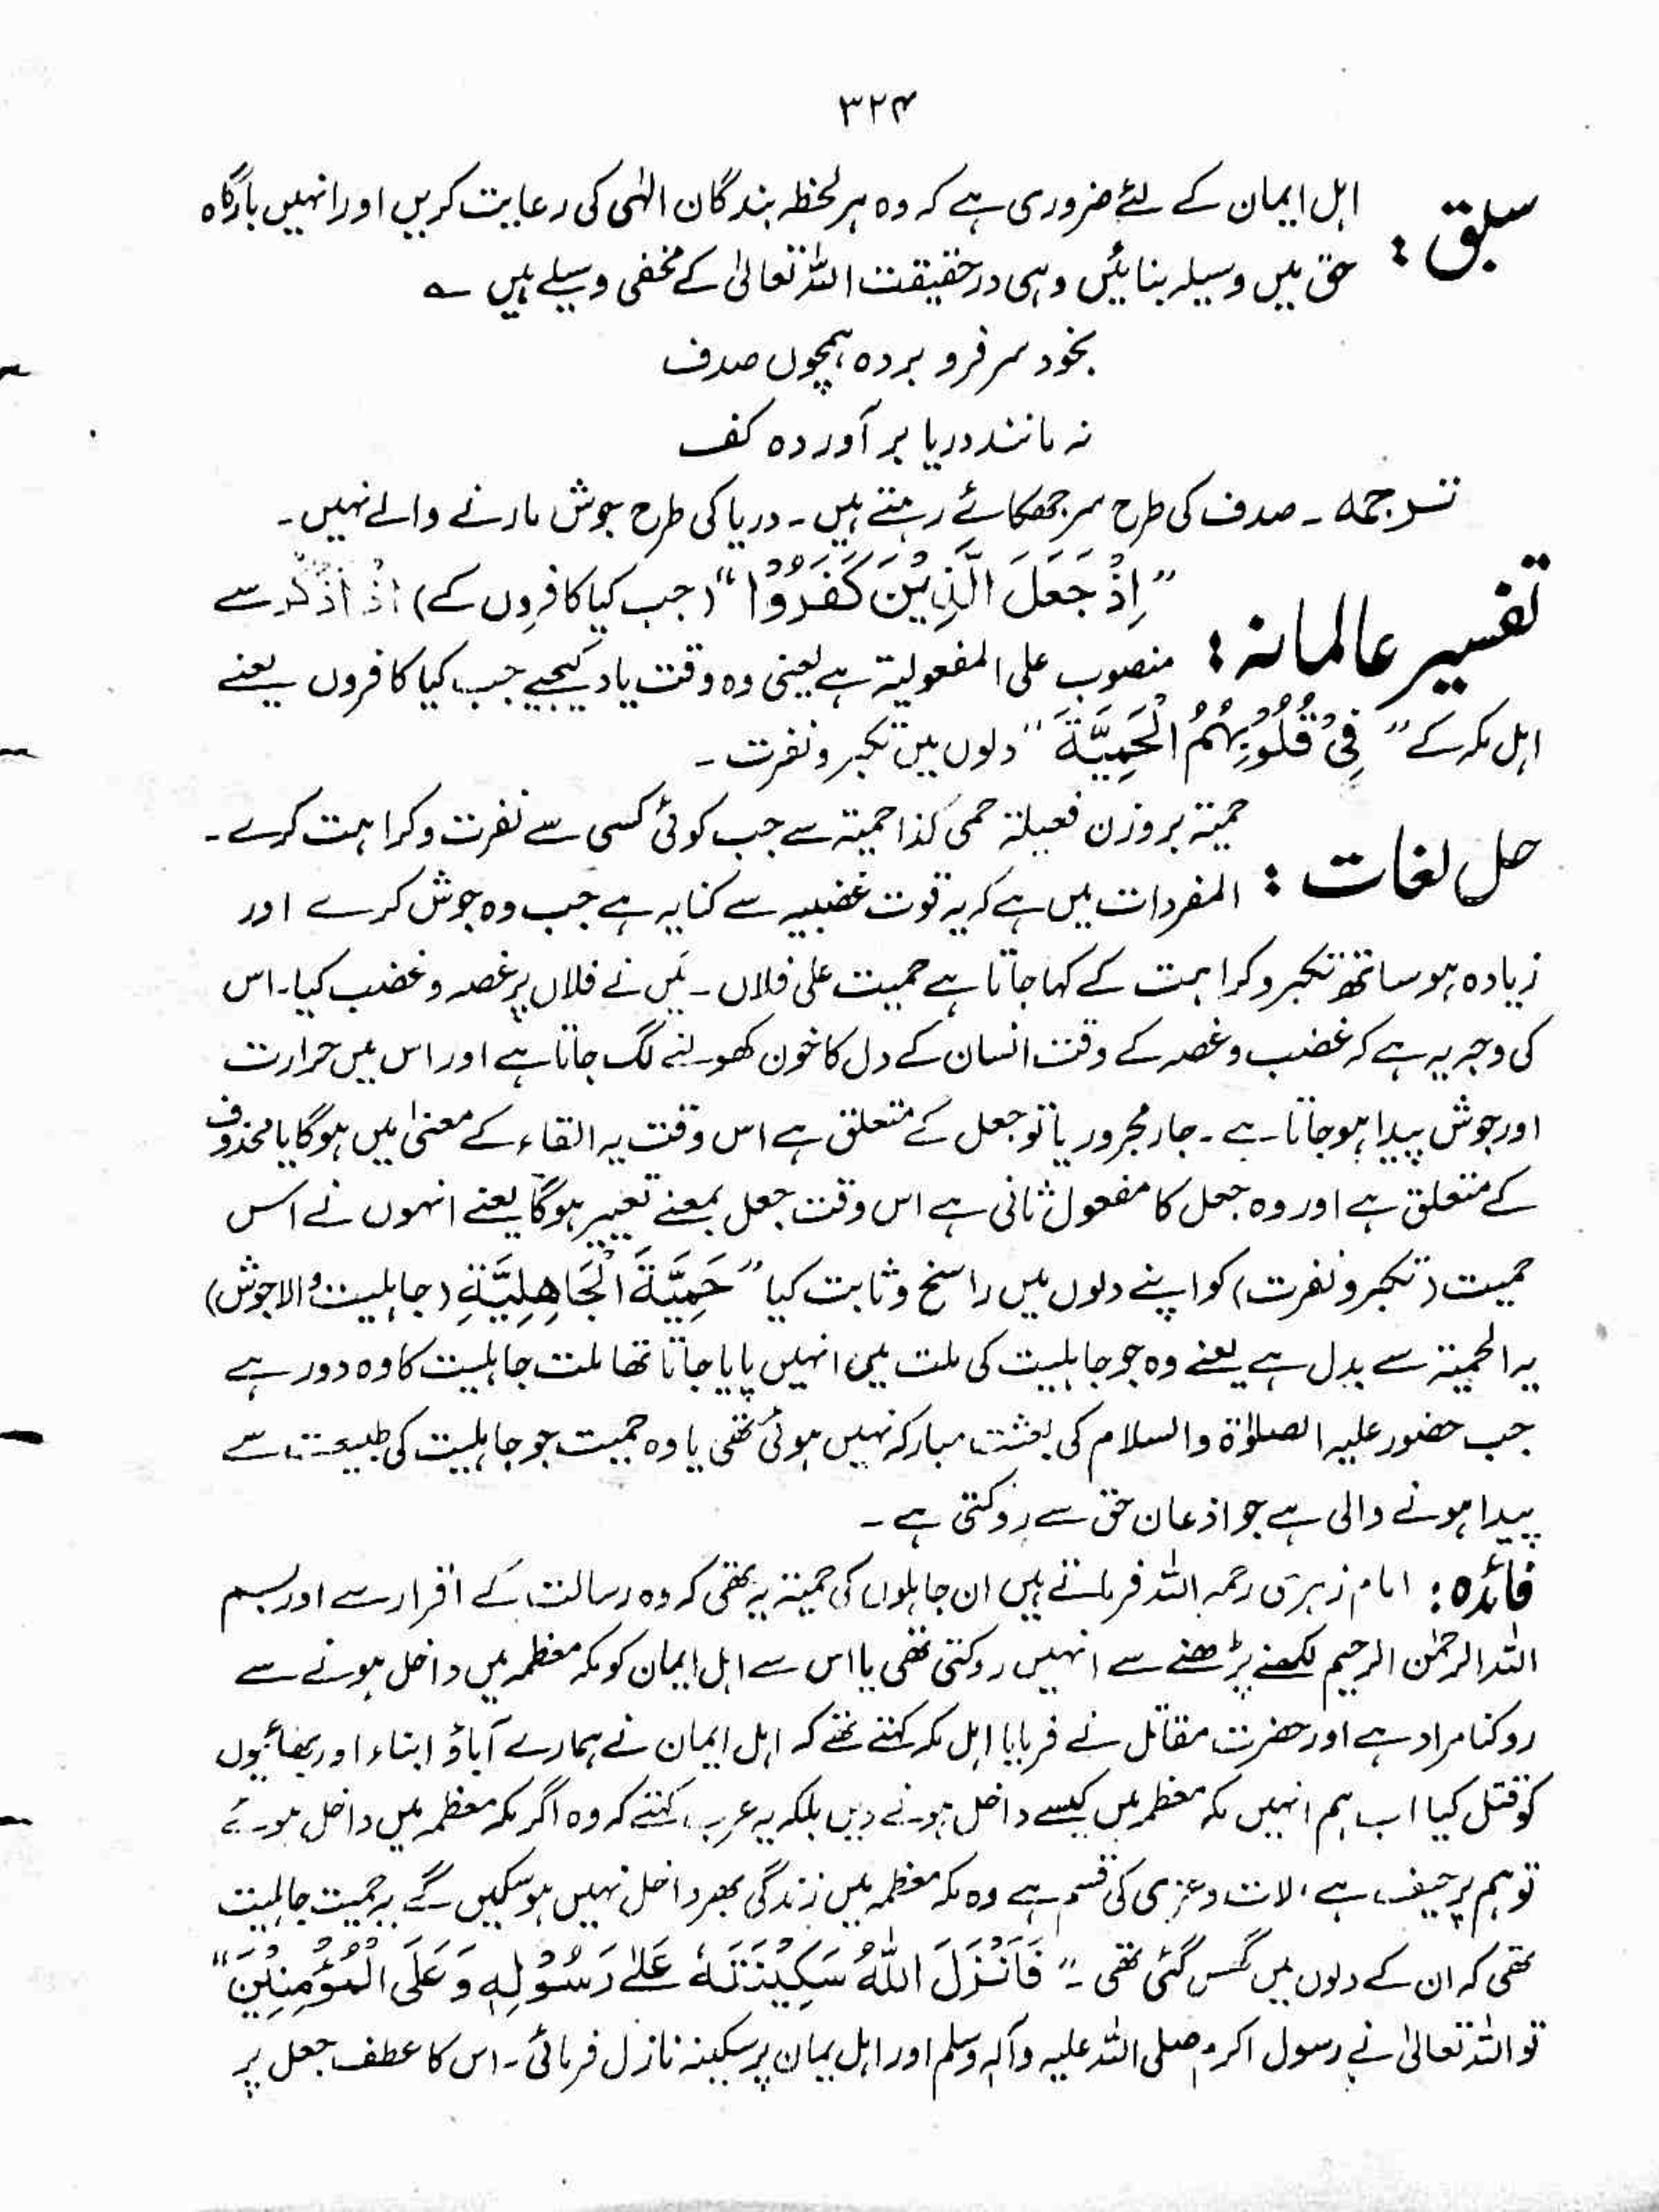 ۳۲۴
سبق : اہل ایمان کے لئے ضروری ہے کہ وہ ہر لحظہ بندگان الٰہی کی رعایت کریں اور انہیں بارگاہ
حق میں وسیلہ بنائیں وہی درحقیقت اللہ تعالیٰ کے مخفی وسیلے ہیں ؎
بخود سر فرو بردہ ہمچوں صدف
نہ مانند دریا بر آوردہ کف
ترجمہ ۔ صدف کی طرح سر جھکائے رہتے ہیں ۔ دریا کی طرح جوش مارنے والے نہیں ۔
تفسیر عالمانہ : ”اِذْ جَعَلَ الَّذِیْنَ كَفَرُوْا“ (جب کیا کافروں کے) اذ اذکر سے
منصوب علی المفعولیۃ ہے یعنی وہ وقت یاد کیجیے جب کیا کافروں یعنے
اہل مکہ کے ”فِیْ قُلُوْبِهِمُ الْحَمِیَّةَ“ دلوں میں تکبر و نفرت ۔
حل لغات : حمیۃ بروزن فعیلۃ حمی کذا حمیۃ سے جب کوئی کسی سے نفرت و کراہت کرے ۔
المفردات میں ہے کہ یہ قوت غضبیہ سے کنایہ ہے جب وہ جوش کرے اور
زیادہ ہو ساتھ تکبر و کراہت کے کہا جاتا ہے حمیت علی فلان ۔ میں نے فلاں پر غصہ و غضب کیا ۔ اس
کی وجہ یہ ہے کہ غضب و غصہ کے وقت انسان کے دل کا خون کھولنے لگ جاتا ہے اور اس میں حرارت
اور جوش پیدا ہو جاتا ہے ۔ جار مجرور یا تو جعل کے متعلق ہے اس وقت یہ القاء کے معنیٰ میں ہوگا یا محذوف
کے متعلق ہے اور وہ جعل کا مفعول ثانی ہے اس وقت جعل بمعنے تعییر ہوگا یعنے انہوں نے اس
حمیت (تکبر و نفرت) کو اپنے دلوں میں راسخ و ثابت کیا ”حَمِیَّةَ الْجَاهِلِیَّةِ (جاہلیت والا جوش)
یہ الحمیۃ سے بدل ہے یعنے وہ جو جاہلیت کی ملت میں انہیں پایا جاتا تھا ملت جاہلیت کا وہ دور ہے
جب حضور علیہ الصلوٰۃ والسلام کی بعثت مبارکہ نہیں ہوئی تھی یا وہ حمیت جو جاہلیت کی طبیعت سے
پیدا ہونے والی ہے جو اذعان حق سے روکتی ہے ۔
فائدہ : امام زہری رحمہ اللہ فرماتے ہیں ان جاہلوں کی حمیۃ یہ تھی کہ وہ رسالت کے اقرار سے اور بسم
اللہ الرحمٰن الرحیم لکھنے پڑھنے سے انہیں روکتی تھی یا اس سے اہل ایمان کو مکہ معظمہ میں داخل ہونے سے
روکنا مراد ہے اور حضرت مقاتل نے فرمایا اہل مکہ کہتے تھے کہ اہل ایمان نے ہمارے آباؤ ابناء اور بھائیوں
کو قتل کیا اب ہم انہیں مکہ معظمہ میں کیسے داخل ہونے دیں بلکہ یہ عرب کہتے کہ وہ اگر مکہ معظمہ میں داخل ہوئے
تو ہم پر حیف ہے ، لات و عزی کی قسم ہے وہ مکہ معظمہ میں زندگی بھر داخل نہیں ہو سکیں گے یہ حمیت جاہلیت
تھی کہ ان کے دلوں میں گھس گئی تھی ۔ ”فَاَنْزَلَ اللّٰهُ سَكِیْنَتَهٗ عَلٰی رَسُوْلِهٖ وَ عَلَی الْمُؤْمِنِیْنَ“
تو اللہ تعالیٰ نے رسول اکرم صلی اللہ علیہ وآلہ وسلم اور اہل ایمان پر سکینہ نازل فرمائی ۔ اس کا عطف جعل پر